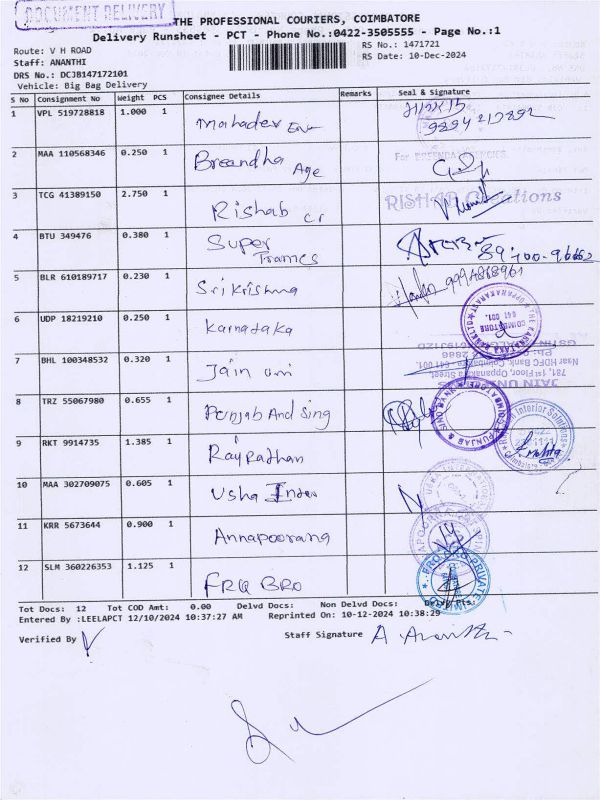 DOCUMENT DELIVERY
THE PROFESSIONAL COURIERS, COIMBATORE
Delivery Runsheet - PCT - Phone No.:0422-3505555 - Page No.:1
Route: V H ROAD
Staff: ANANTHI
RS No.: 1471721
RS Date: 10-Dec-2024
DRS No.: DCJB147172101
Vehicle: Big Bag Delivery
S No Consignment No Weight PCS Consignee Details Remarks Seal & Signature
1 VPL 519728818 1.000 1 Mahadev Ent
2 MAA 110568346 0.250 1 Breandha Age
3 TCG 41389150 2.750 1 Rishab Cr RISHAB Creations
4 BTU 349476 0.380 1 Super Frames
5 BLR 610189717 0.230 1 Sri Krishna 9994868961
6 UDP 18219210 0.250 1 Karnataka
7 BHL 100348532 0.320 1 Jain uni
JAIN UNI
781, 1st Floor, Oppanakara Street
Near HDFC Bank, Coimbatore - 641 001
8 TRZ 55067980 0.655 1 Punjab And Sing PUNJAB & SIND BANK
9 RKT 9914735 1.385 1 Raj Rathan Interior Solutions
10 MAA 302709075 0.605 1 Usha Inter
11 KRR 5673644 0.900 1 Annapoorana
12 SLM 360226353 1.125 1 FRQ BRO
Tot Docs: 12 Tot COD Amt: 0.00 Delvd Docs: Non Delvd Docs:
Entered By :LEELAPCT 12/10/2024 10:37:27 AM Reprinted On: 10-12-2024 10:38:29
Verified By
Staff Signature A. Ananthi